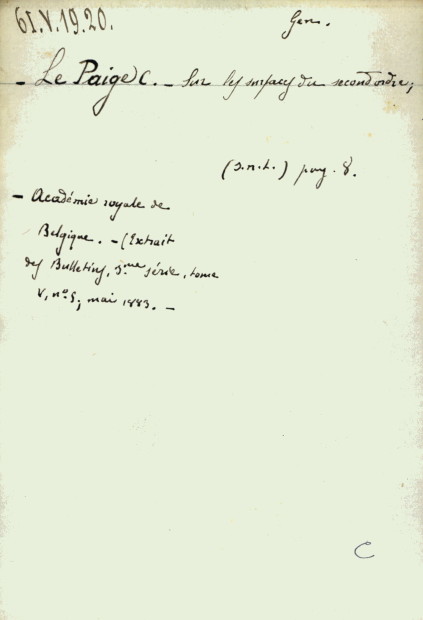 61.V.19.20.
Gen.
- Le Paige C. - Sur les surfaces du second ordre;
(s.n.t.) pag. 8.
- Académie royale de
Belgique. - (Extrait
des Bulletins, 3.me série, tome
V, n.o 5; mai 1883. -
C